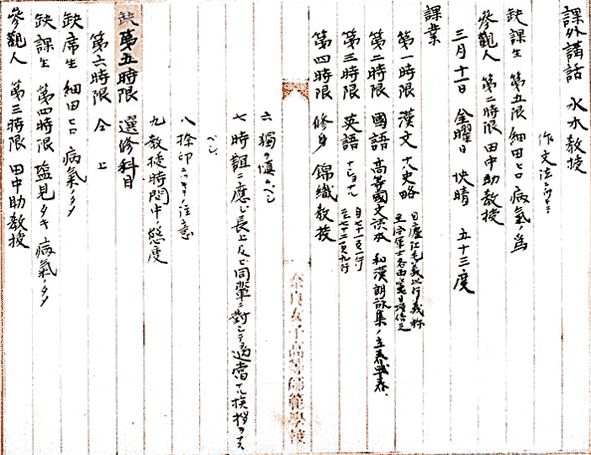 課外講話 水木教授
作文法ニツキテ
缺課生 第五限 細田ヒロ 病氣ノ為
參觀人 第二時限 田中助教授
三月十一日 金曜日 快晴 五十三度
課業
第一時限 漢文 十八史略
第二時限 國語 高等國文読本 和漢朗詠集ノ立春 早春
第三時限 英語
第四時限 修身 錦織教授
奈良女子高等師範學校
六 獨ヲ慎ムベシ
七 時誼ニ應ジ長上及ビ同輩ニ對シテ適當ナル挨拶ヲナスベシ
八 捺印ニツキテ注意
九 教授時間中ノ態度
缺 第五時限 選修科目
第六時限 仝上
缺席生 細田ヒロ 病氣ノタメ
缺課生 第四時限 塩見タキ 病氣ノタメ
參觀人 第三時限 田中助教授